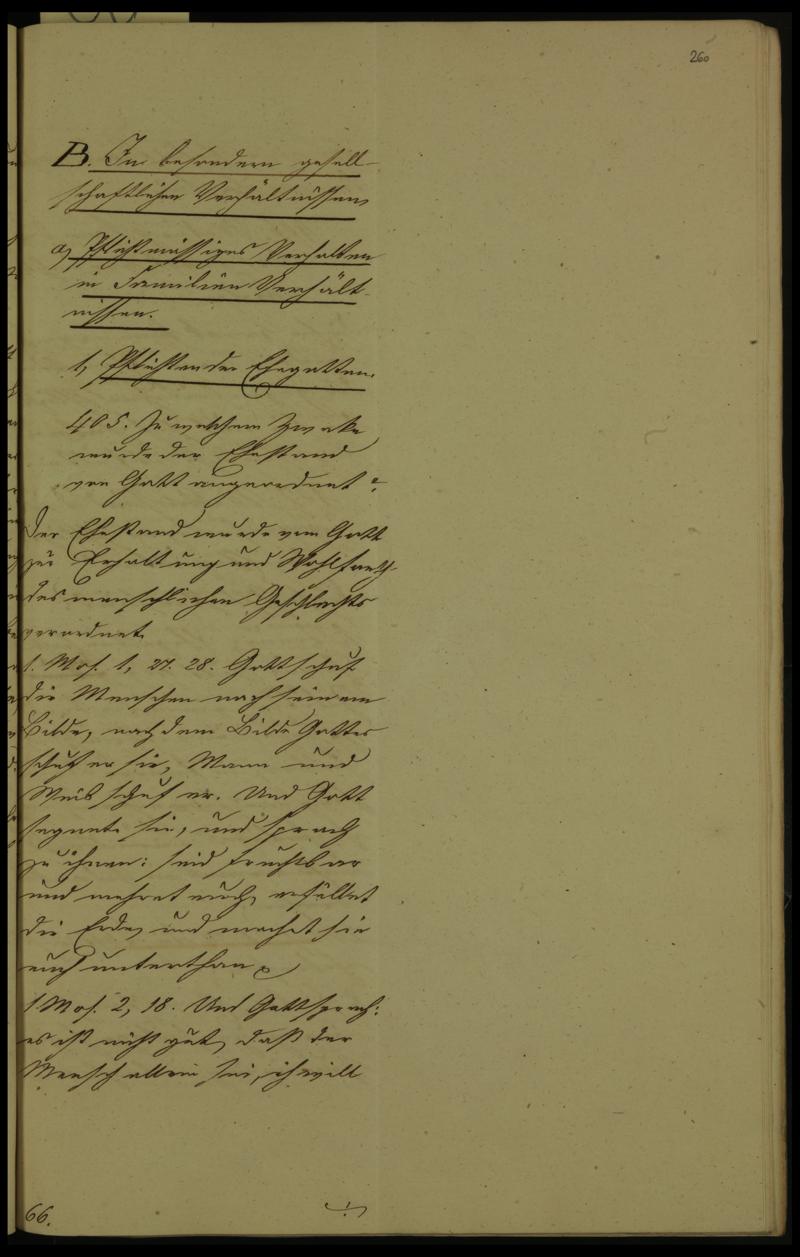 260
B. In besondern gesell-
schaftlichen Verhältnissen
a, Pflichtmässiges Verhalten
in Familien Verhält-
nissen.
1, Pflichten der Ehegatten.
405. Zu welchem Zweke
wurde der Ehestand
von Gott angeordnet?
Der Ehestand wurde von Gott
zur Erhaltung und Wohlfarth
des menschlichen Geschlechts
verordnet.
1. Mos. 1, 27. 28. Gott schuf
die Menschen nach seinem
Bilde, nach dem Bilde Gottes
schuf er sie, Mann und
Weib schuf er. Und Gott
segnete sie, und sprach
zu ihnen: seid fruchtbar
und mehret euch, erfüllet
die Erde, und machet sie
euch unterthan
1 Mos. 2, 18. Und Gott sprach:
es ist nicht gut, daß der
Mensch allein sei, ich will
66.